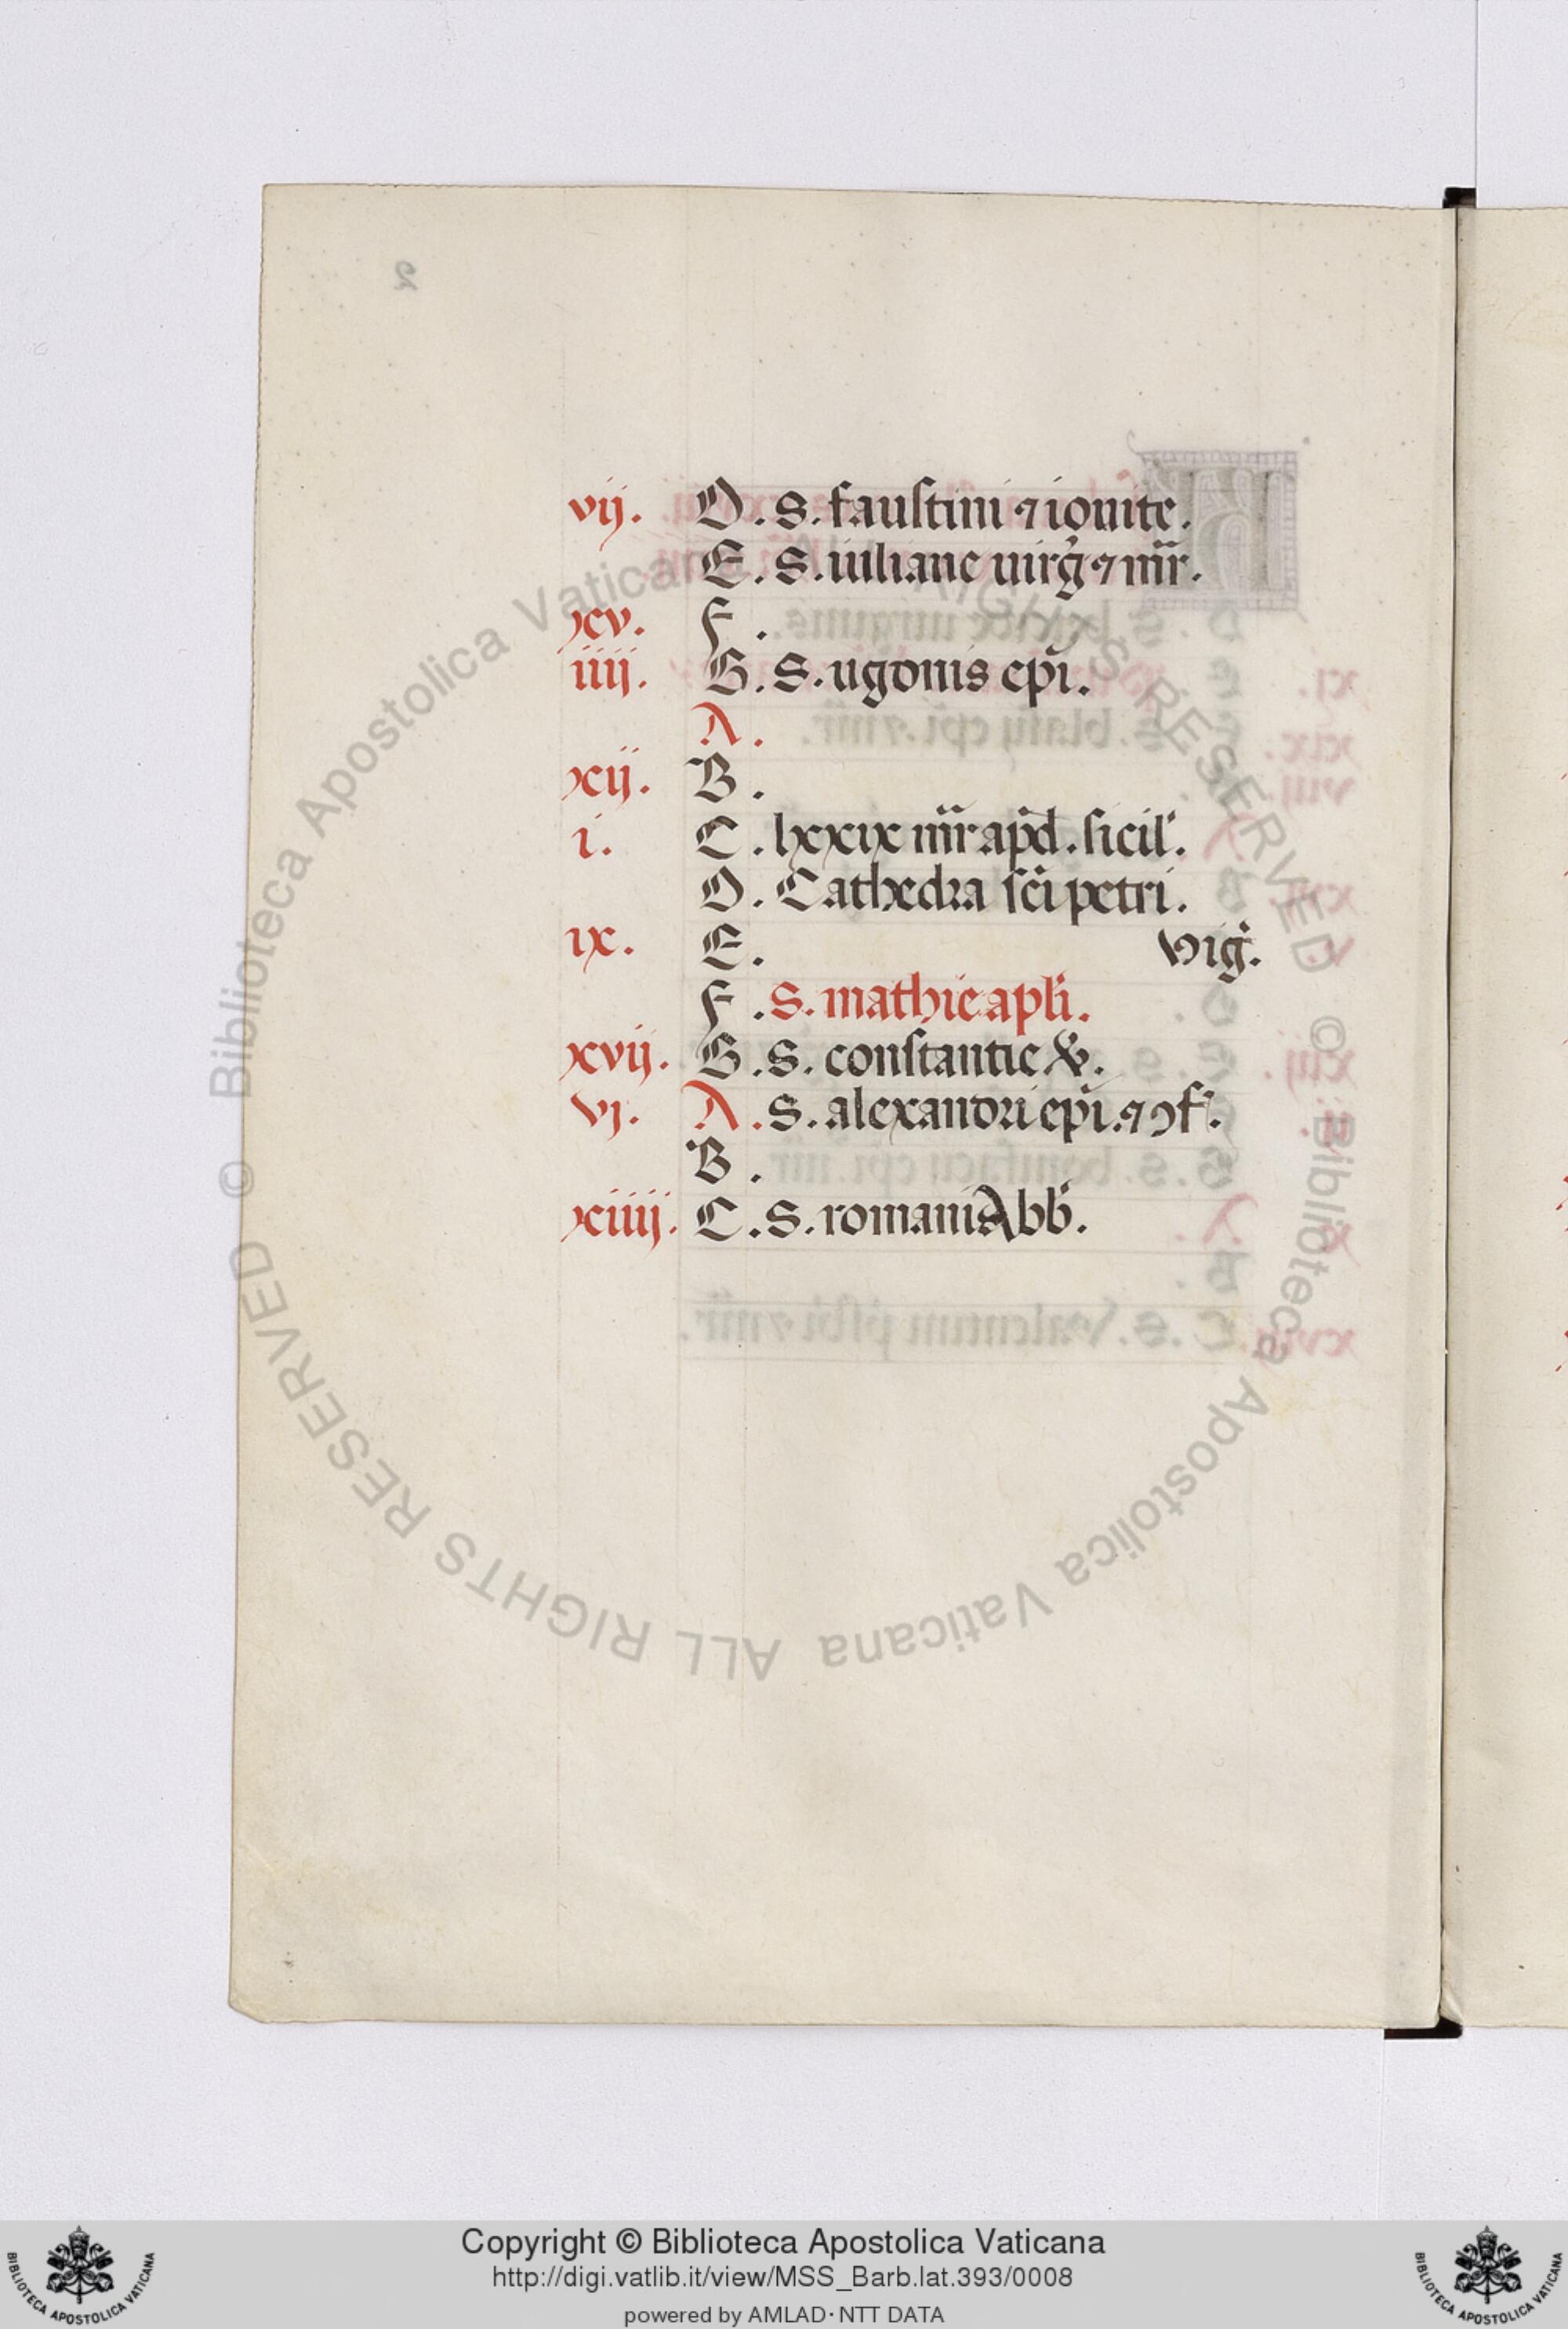 vij. D. S. faustini ⁊ iouite.
E. S. iuliane uirg̉ ⁊ mr̄.
xv. F.
iiij. G. S. ugonis ep̄i.
A.
xij. B.
i. C. lxxix mr̄ ap̄d. sicil'.
D. Cathedra sc̄i petri.
ix. E. Vig̉.
F. S. mathie apl̄i.
xvij. G. S. constantie &.
vj. A. S. alexandri ep̄i. ⁊ ꝯf'.
B.
xiiij. C. S. romani Abb̄.
© Biblioteca Apostolica Vaticana ALL RIGHTS RESERVED © Biblioteca Apostolica Vaticana ALL RIGHTS RESERVED
Copyright © Biblioteca Apostolica Vaticana
http://digi.vatlib.it/view/MSS_Barb.lat.393/0008
powered by AMLAD · NTT DATA
BIBLIOTECA APOSTOLICA VATICANA
BIBLIOTECA APOSTOLICA VATICANA